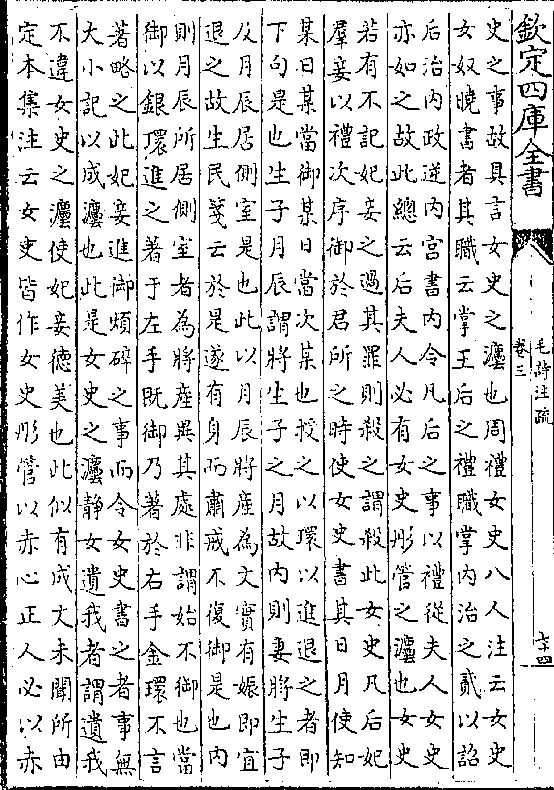 欽定四庫全書
毛詩注疏
卷三
六十四
史之事故具言女史之灋也周禮女史八人注云女史
女奴曉書者其職云掌王后之禮職掌內治之貳以詔
后治內政逆內宮書內令凡后之事以禮從夫人女史
亦如之故此總云后夫人必有女史彤管之灋也女史
若有不記妃妾之過其罪則殺之謂殺此女史凡后妃
羣妾以禮次序御於君所之時使女史書其日月使知
某日某當御某日當次某也授之以環以進退之者即
下句是也生子月辰謂將生子之月故內則妻將生子
及月辰居側室是也此以月辰將產為文實有娠即宜
退之故生民箋云於是遂有身而肅戒不復御是也內
則月辰所居側室者為將產異其處非謂始不御也當
御以銀環進之著于左手既御乃著於右手金環不言
著略之此妃妾進御煩碎之事而令女史書之者事無
大小記以成灋也此是女史之灋靜女遺我者謂遺我
不違女史之灋使妃妾德美也此似有成文未聞所由
定本集注云女吏皆作女史彤管以赤心正人必以赤